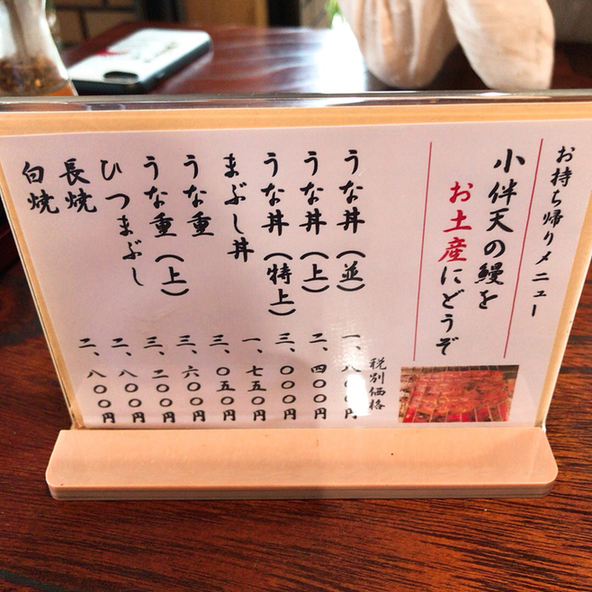 お持ち帰りメニュー
小伴天の鰻を
お土産にどうぞ
税別価格
うな丼(並) 一、八〇〇円
うな丼(上) 二、四〇〇円
うな丼(特上) 三、〇〇〇円
まぶし丼 一、七五〇円
うな重 三、〇五〇円
うな重(上) 三、六〇〇円
ひつまぶし 三、二〇〇円
長焼 二、八〇〇円
白焼 二、八〇〇円